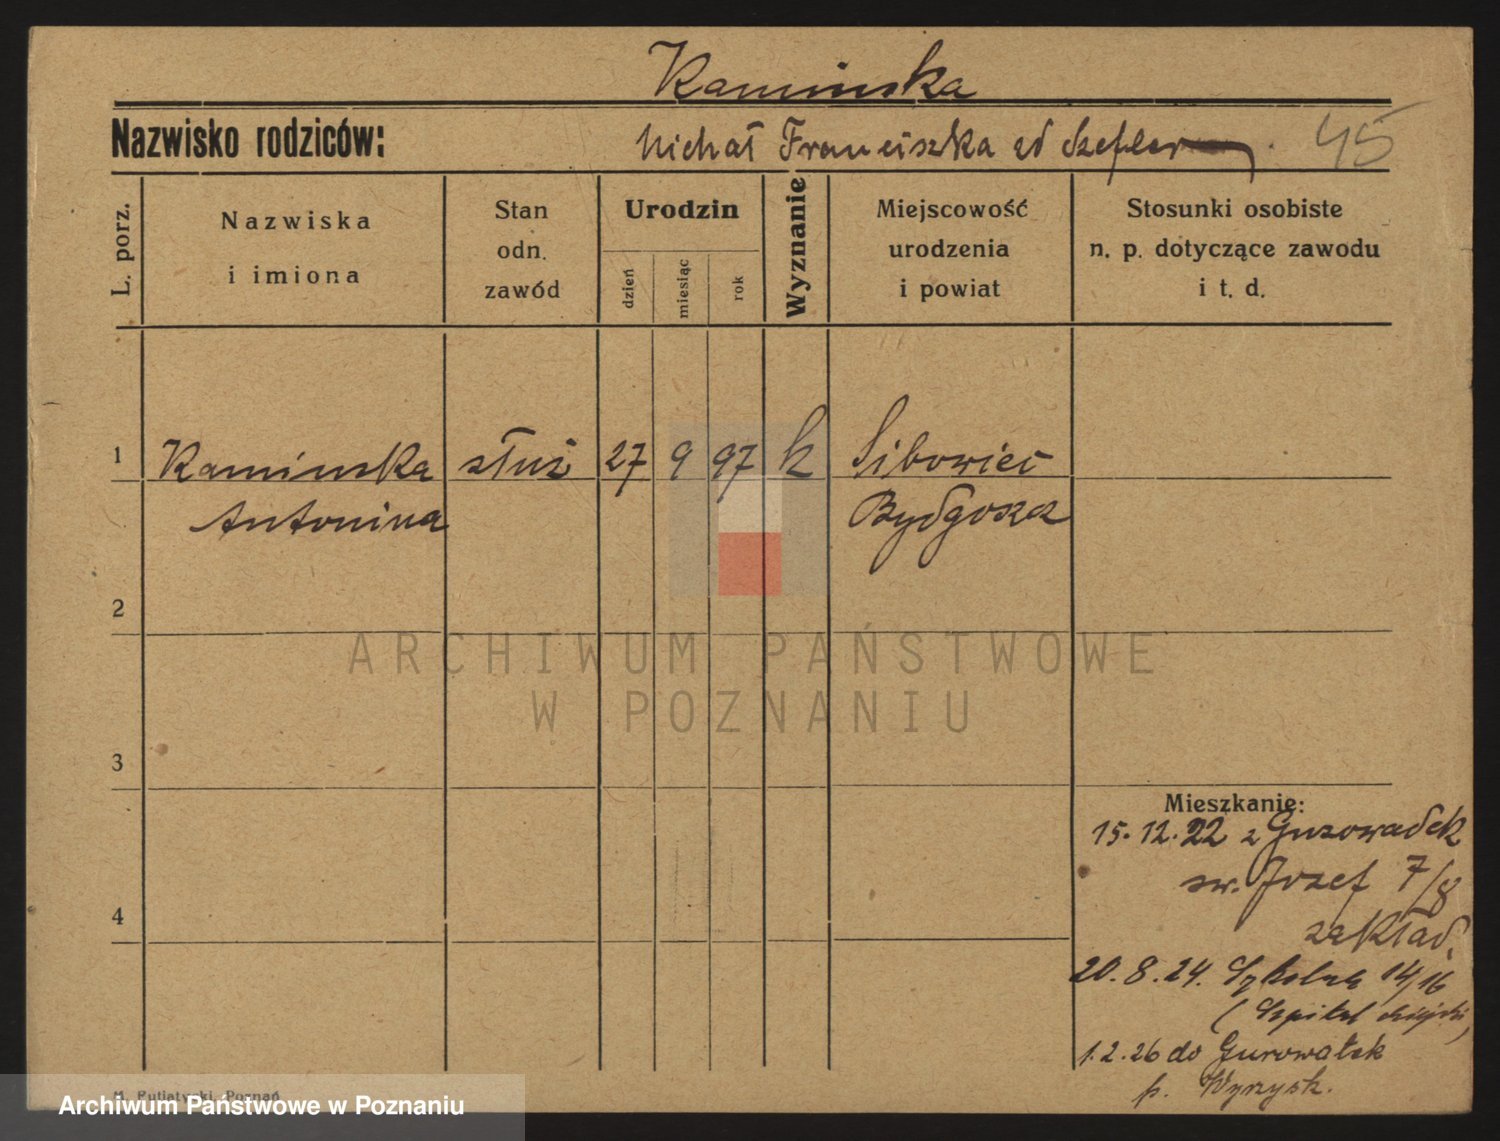 Kaminska
Nazwisko rodziców:
Michał Franciszka zd Szefler
45
L. porz.
Nazwiska
i imiona
Stan
odn.
zawód
Urodzin
dzień
miesiąc
rok
Wyznanie
Miejscowość
urodzenia
i powiat
Stosunki osobiste
n. p. dotyczące zawodu
i t. d.
1
Kaminska
służ
27
9
97
k
Sibowiec
Antonina
Bydgoszcz
2
ARCHIWUM PAŃSTWOWE
W POZNANIU
3
Mieszkanie:
15.12.22 z
św. Józef 7/8
zakład.
4
20.8.24. Szkolna 14/16
(Szpital miejski)
1.2.26 do
p. Wyrzysk.
Poznań
Archiwum Państwowe w Poznaniu